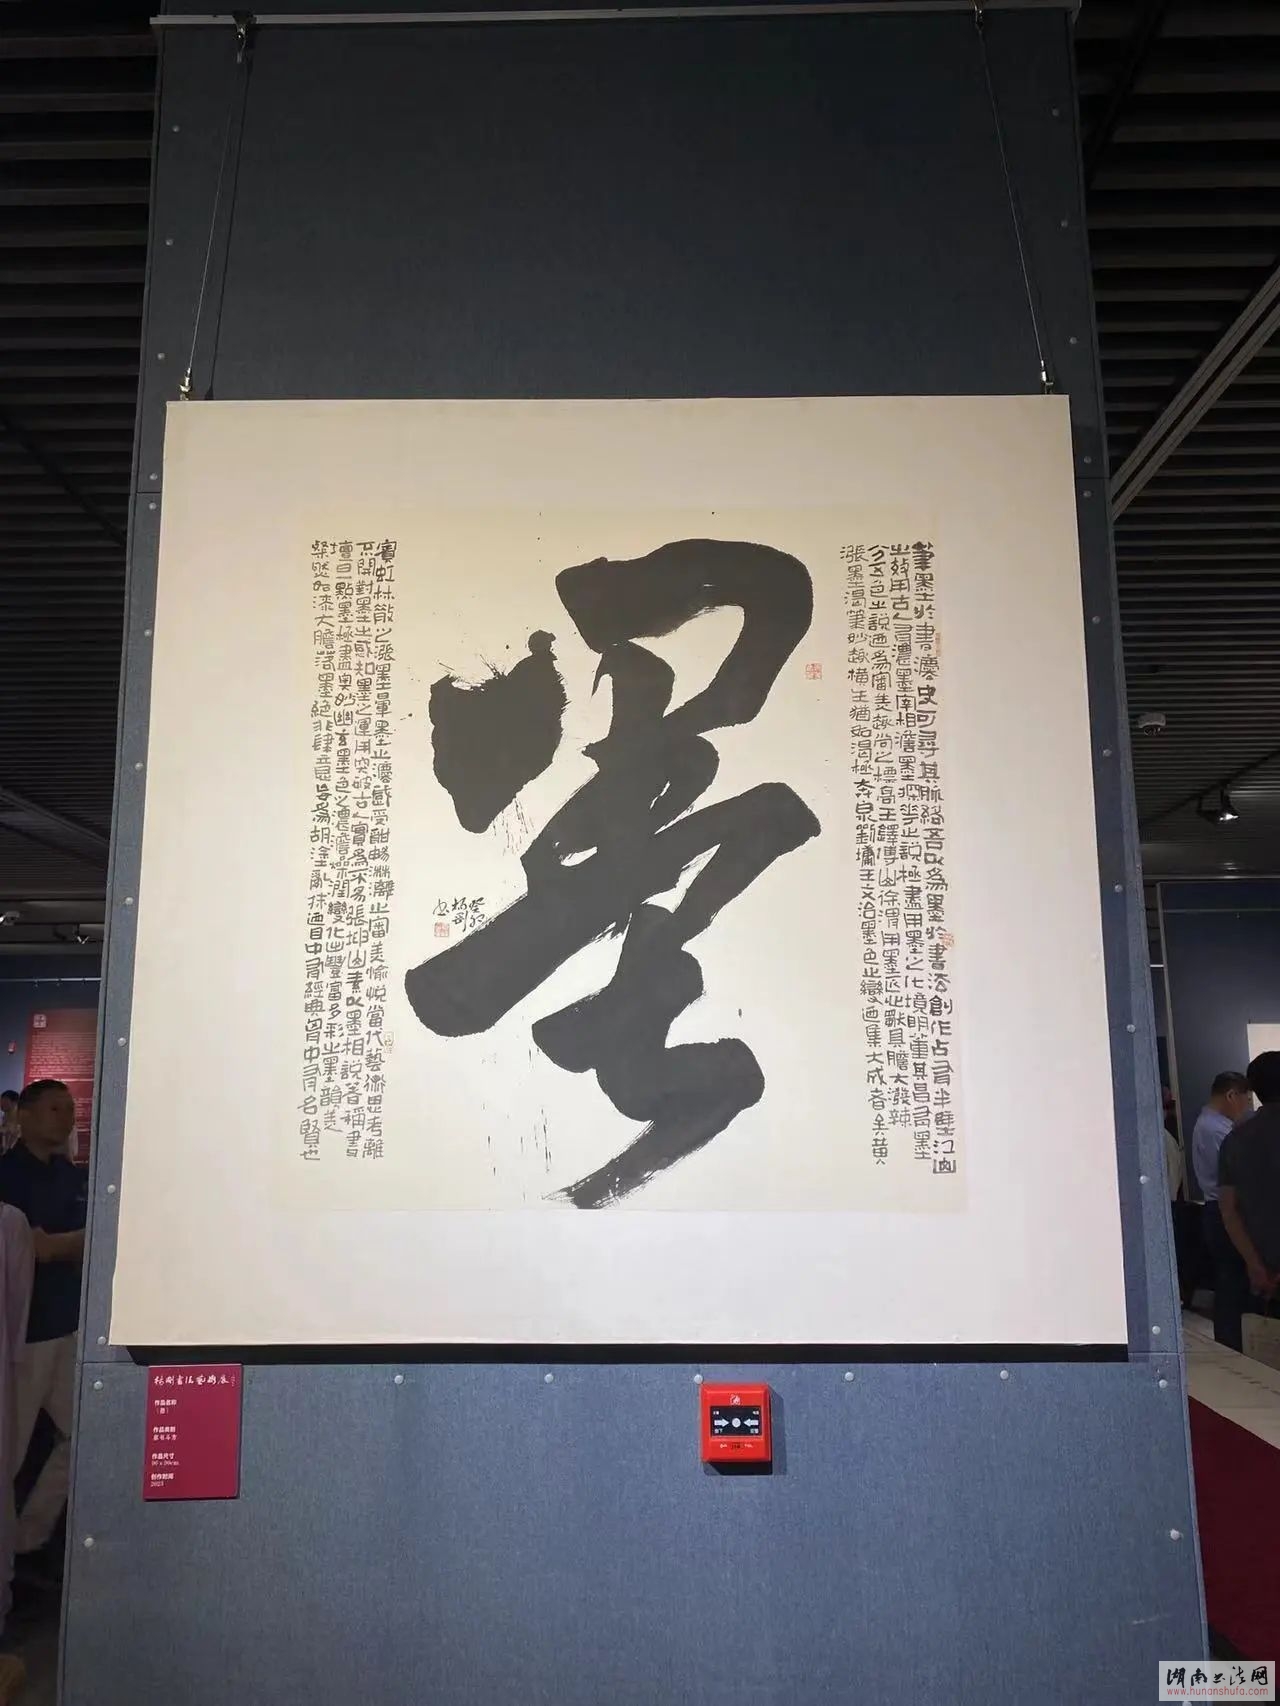 墨
筆墨於書法史可尋其脈絡吾以為墨於書法創作占有半壁江山
之效用古人有濃墨宰相淡墨探花之說極盡用墨之化境明董其昌有墨
分五色之說迺為審美趣尚之標高王鐸傅山徐渭用墨
漲墨渴筆妙趣橫生猶如渴極奔泉劉墉王文治墨色之變迺集大成者矣黃
賓虹林散之漲墨暈墨之法感受酣暢淋漓之審美愉悅當代藝術思考離
不開對墨之感知墨之運用突破古人實為不易張邯山素以墨相說著稱書
壇曰一點墨極盡奧妙幽玄墨色之濃淡燥潤變化出豐富多彩之墨韻美
粲然如漆大膽落墨絕非肆意妄為胡塗亂抹迺目中有經典胸中有名賢也
癸卯
楊剛
書
楊剛書法藝術展
作品名称
《墨》
作品类别
草书斗方
作品尺寸
创作时间
2023
湖南书法网
www.hunanshufa.com